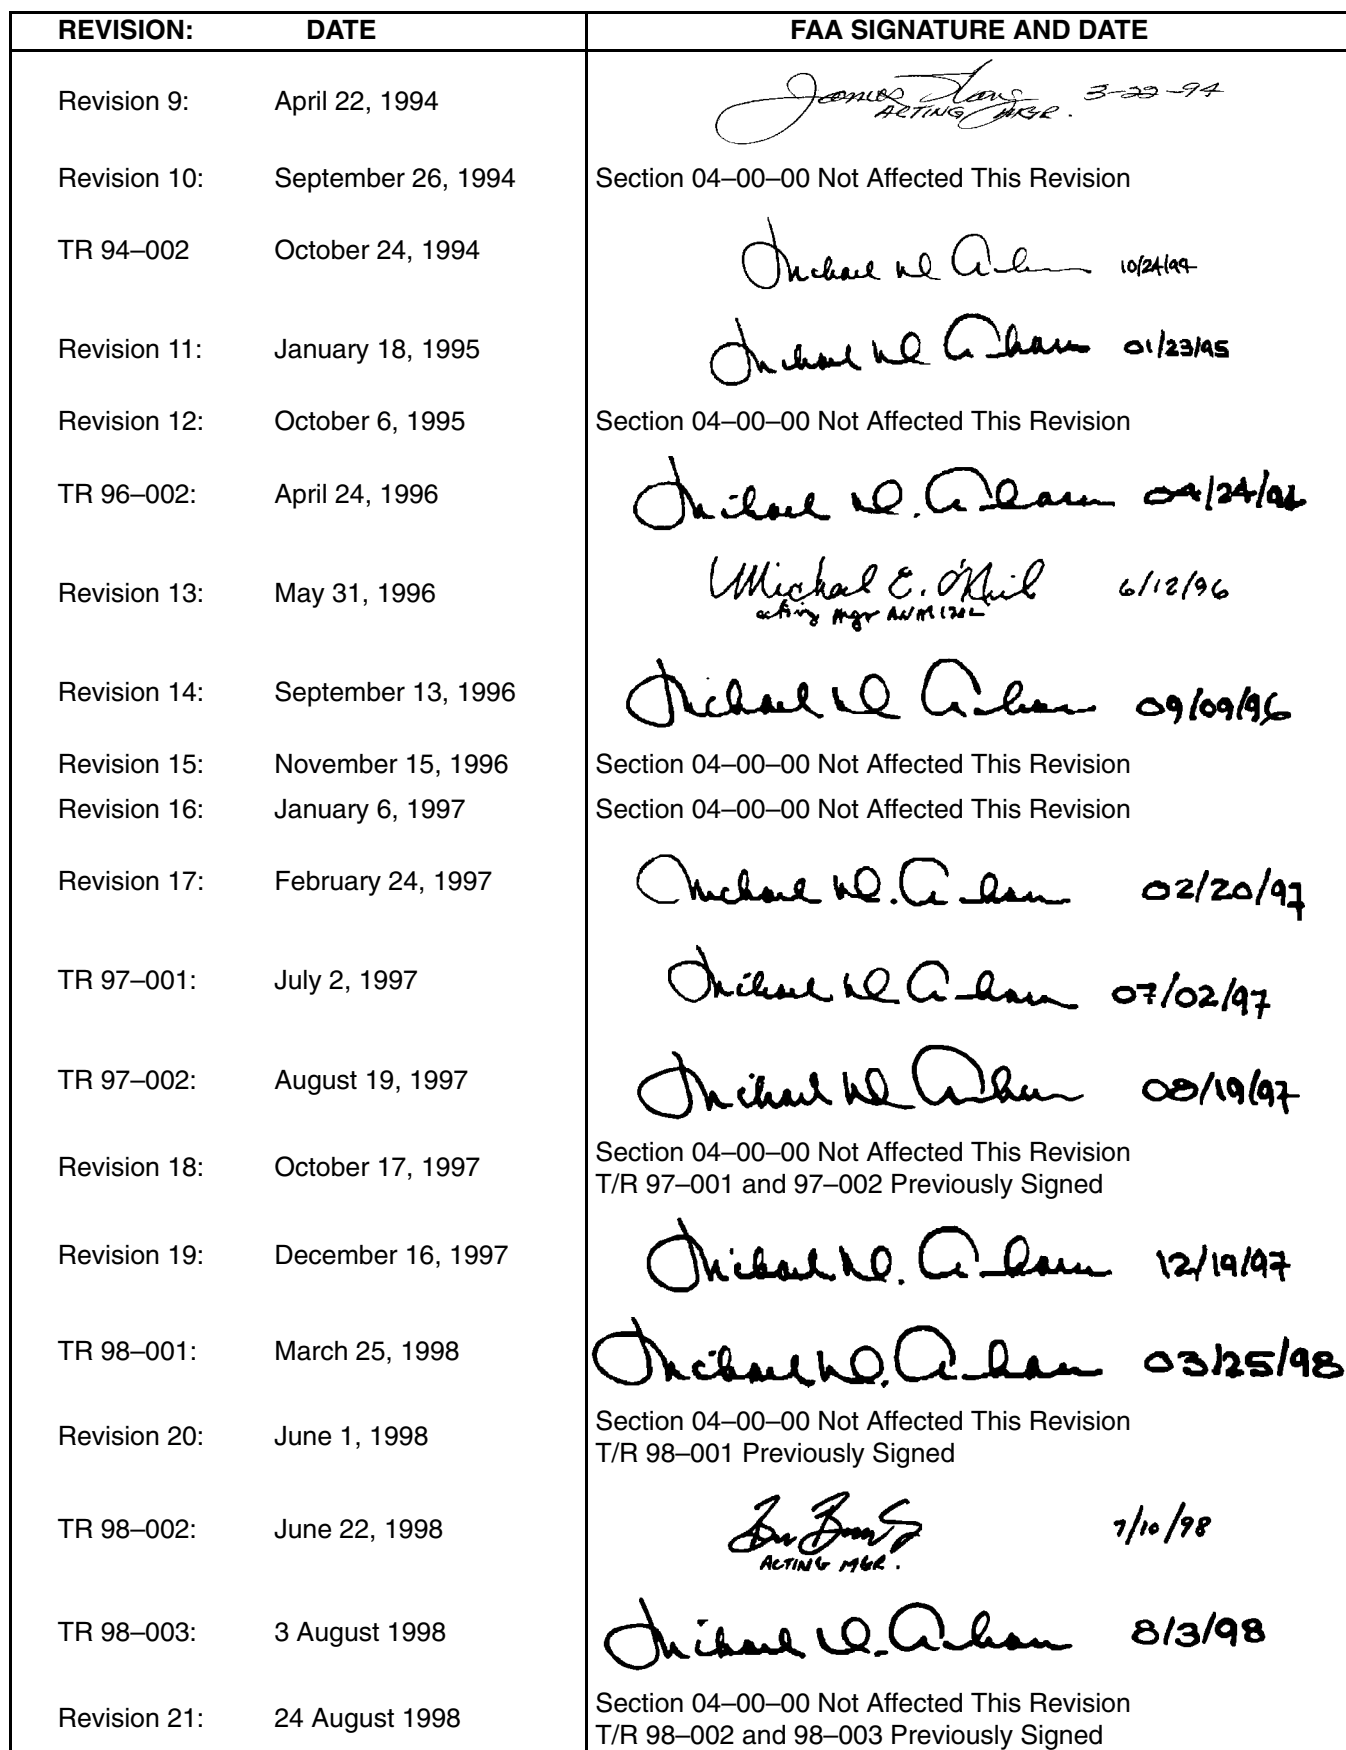 REVISION: DATE FAA SIGNATURE AND DATE
Revision 9: April 22, 1994 James 3-22-94
ACTING MGR.
Revision 10: September 26, 1994 Section 04–00–00 Not Affected This Revision
TR 94–002 October 24, 1994 Michael 10/24/94
Revision 11: January 18, 1995 Michael 01/23/95
Revision 12: October 6, 1995 Section 04–00–00 Not Affected This Revision
TR 96–002: April 24, 1996 Michael 04/24/96
Revision 13: May 31, 1996 Michael E. O'Neil 6/12/96
acting Mgr
Revision 14: September 13, 1996 Michael 09/09/96
Revision 15: November 15, 1996 Section 04–00–00 Not Affected This Revision
Revision 16: January 6, 1997 Section 04–00–00 Not Affected This Revision
Revision 17: February 24, 1997 Michael 02/20/97
TR 97–001: July 2, 1997 Michael 07/02/97
TR 97–002: August 19, 1997 Michael 08/19/97
Revision 18: October 17, 1997 Section 04–00–00 Not Affected This Revision
T/R 97–001 and 97–002 Previously Signed
Revision 19: December 16, 1997 Michael 12/19/97
TR 98–001: March 25, 1998 Michael 03/25/98
Revision 20: June 1, 1998 Section 04–00–00 Not Affected This Revision
T/R 98–001 Previously Signed
TR 98–002: June 22, 1998 7/10/98
ACTING MGR.
TR 98–003: 3 August 1998 Michael 8/3/98
Revision 21: 24 August 1998 Section 04–00–00 Not Affected This Revision
T/R 98–002 and 98–003 Previously Signed